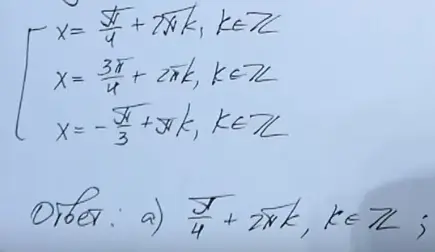 x = π/4 + 2πk, k∈ℤ
x = 3π/4 + 2πk, k∈ℤ
x = -π/3 + πk, k∈ℤ
Ответ: а) π/4 + 2πk, k∈ℤ;